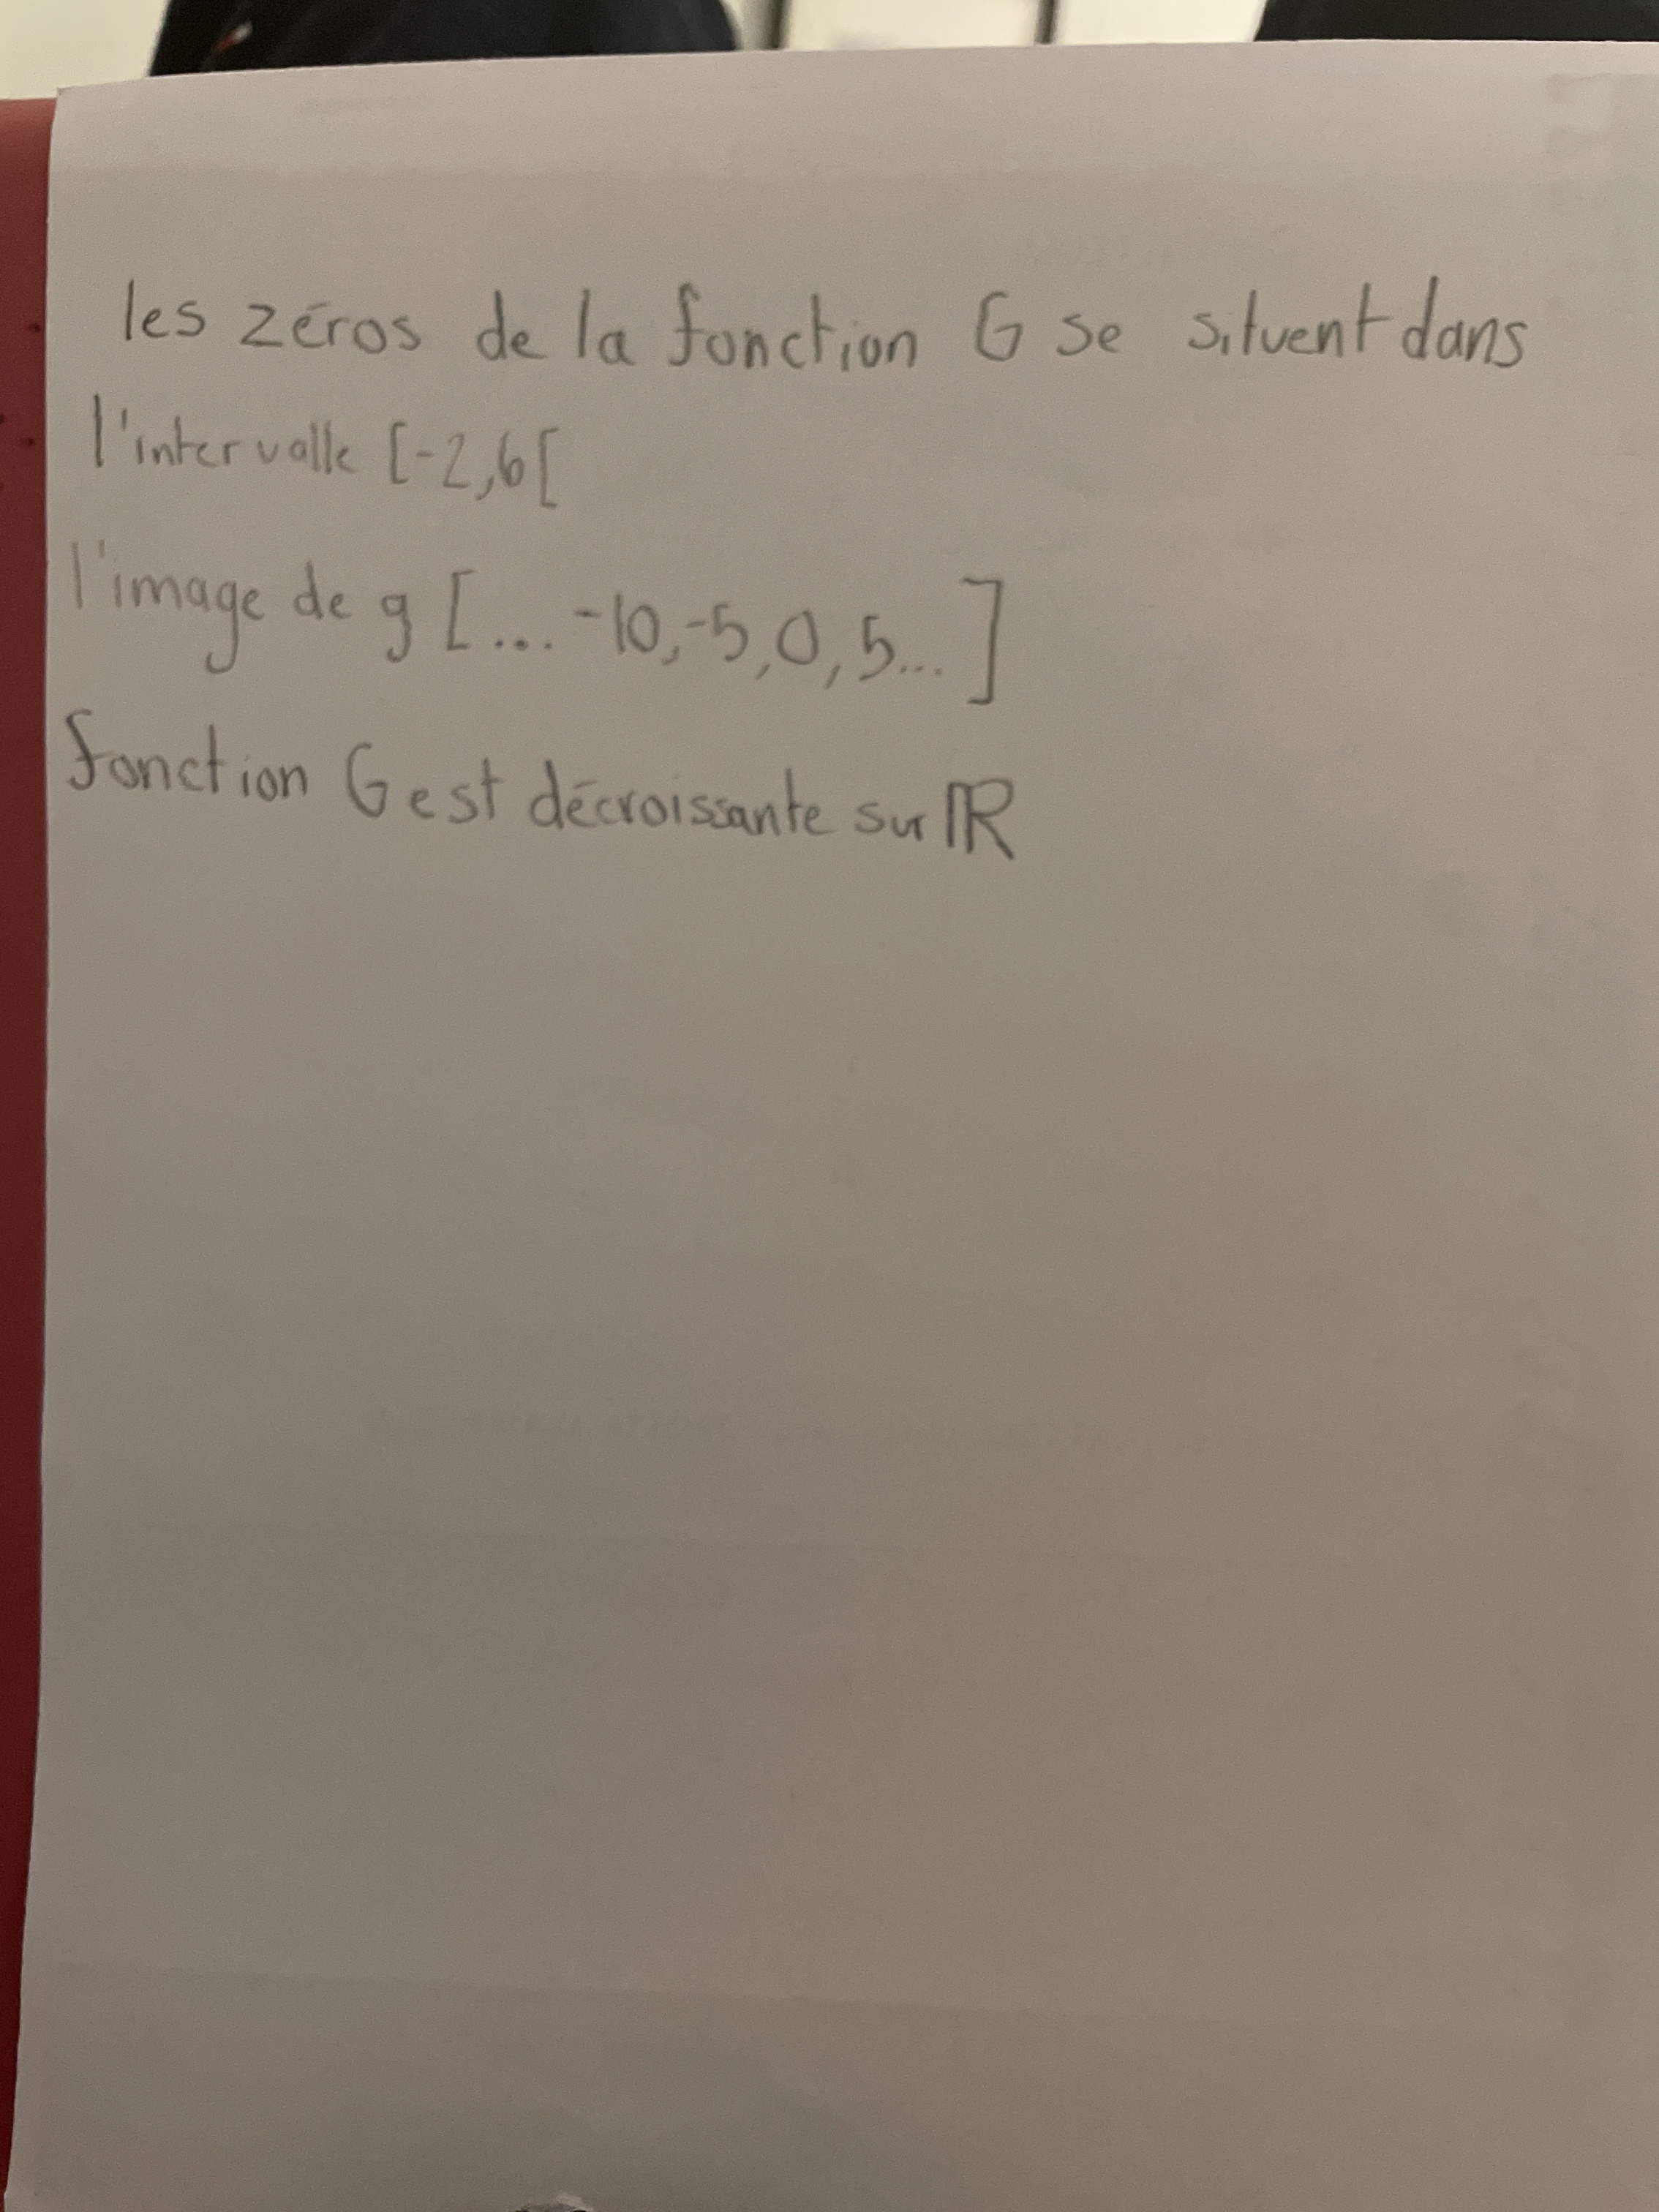 les zéros de la fonction G se situent dans
l'intervalle [-2,6[
l'image de g [...-10,-5,0,5...]
fonction G est décroissante sur ℝ